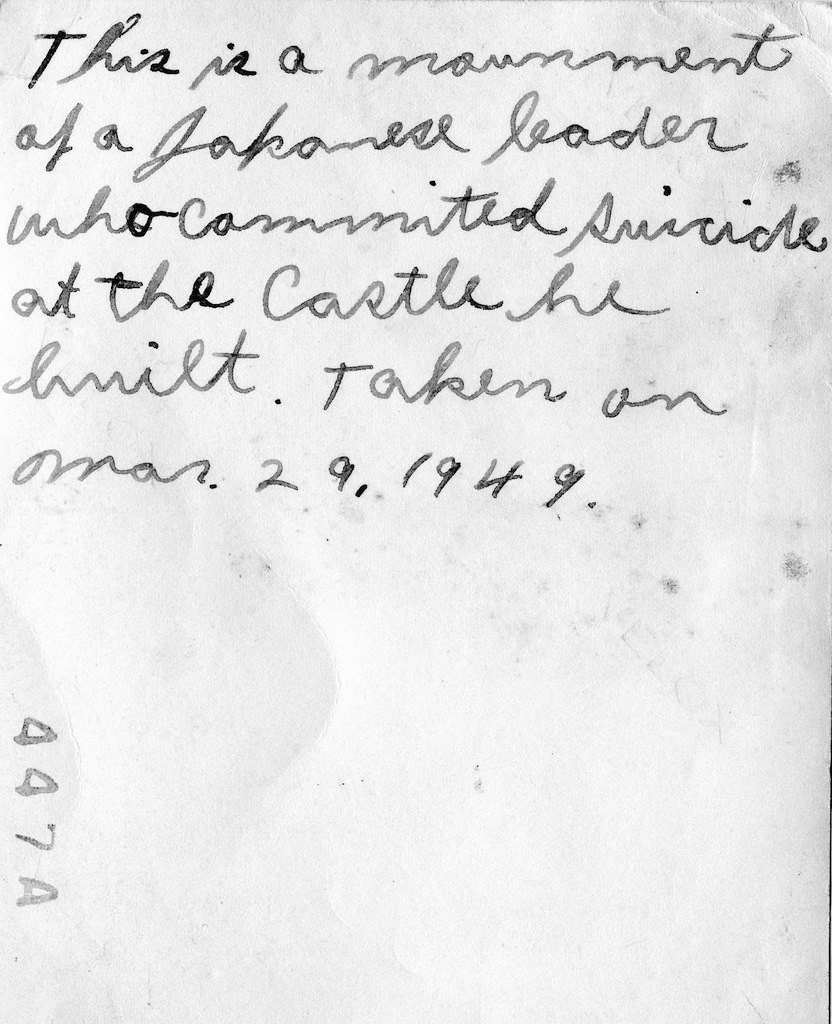 This is a mounment
of a Japanese leader
who commited suicide
at the Castle he
built. Taken on
Mar. 29, 1949.
447A